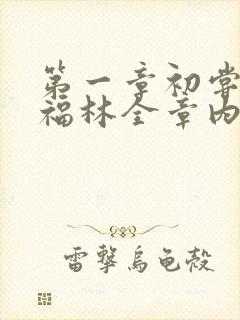 第一章初尝
福林全章内
雷擊烏龟殼